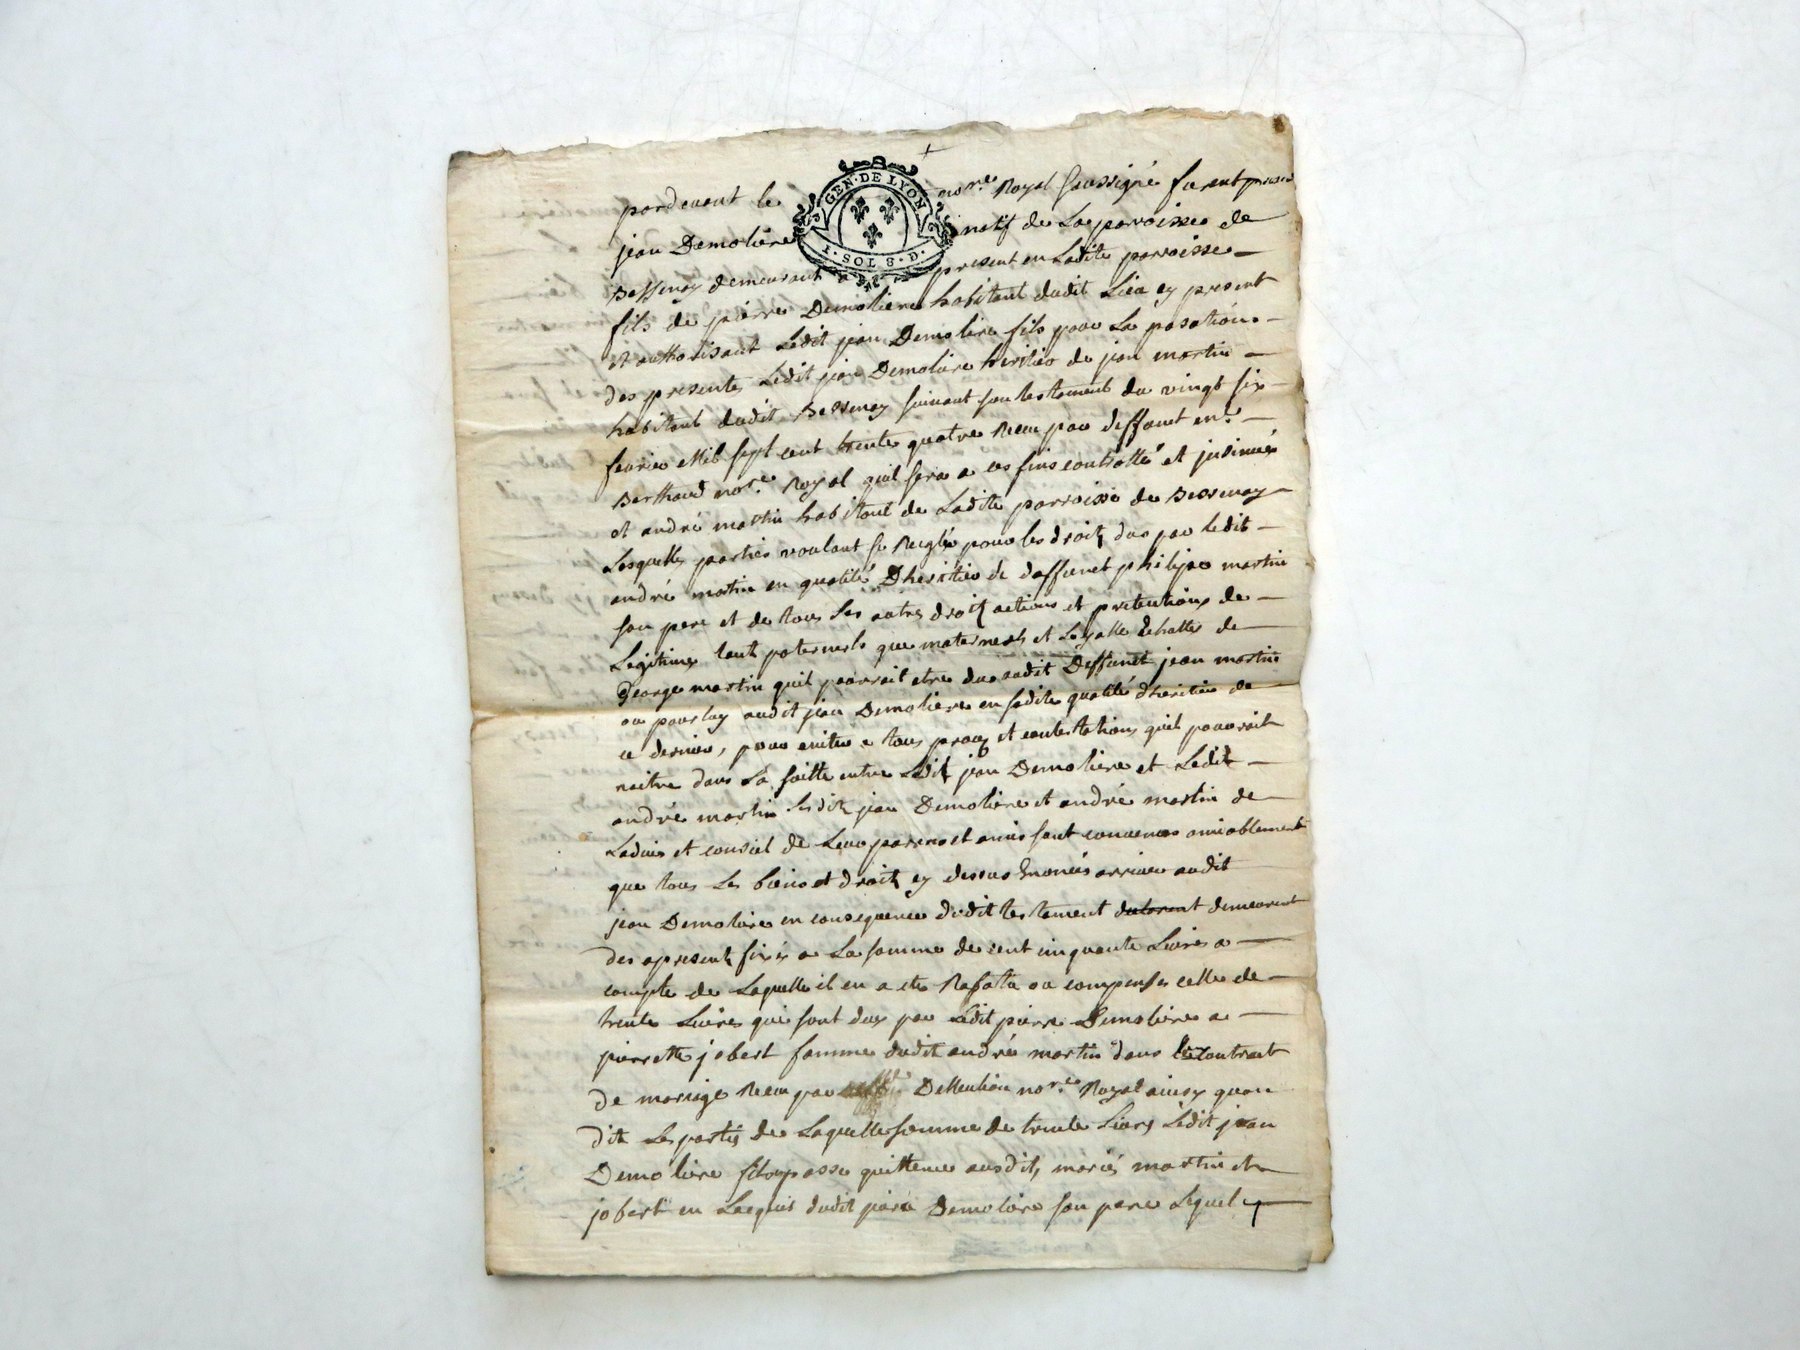 GEN·DE LYON
1·SOL 8·D·
pardevant le no.re Royal soussigné furent presens
jean Demoliere natif de La parroisse de
Bessenay demeurant a present en Ladite parroisse
fils de pierre Demoliere habitant dudit Lieu cy present
et authorisant Ledit jean Demoliere fils pour La passation
des presentes Ledit jean Demoliere heritier de jean martin
habitant dudit Bessenay suivant son testament du vingt six
fevrier Mil sept cent trente quatre Receu par deffunt
Berthaud no.re Royal quil sera a ces fins controllé et insinué
et andré martin habitant de Ladite parroisse de Bessenay
Lesquelles parties voulant se Regler pour les droitz dus par Ledit
andré martin en qualité Dheritier de deffunct philipe martin
son pere et de tous les autres droitz actions et pretentions de
Legitimes tant paternels que maternels et de
George martin quil pourroit etre du audit Deffunct jean martin
ou pour luy audit jean Demoliere en sadite qualité dheritier de
ce dernier, pour eviter a tous proces et contestations quil pourroit
naitre dans La suitte entre Ledit jean Demoliere et Ledit
andré martin Lesditz jean Demoliere et andré martin de
Ladvis et conseil de Leur parens et amis sont convenus amiablement
que tous Les biens et droitz cy dessus Enoncés arrivés audit
jean Demoliere en consequence dudit testament demeurent
des apresent fixés a La somme de cent cinquante Livres a
compte de Laquelle il en a eté ou compensés celle de
trente Livres qui sont dues par Ledit pierre Demoliere a
pierrette jobert femme dudit andré martin dans Le contrat
de mariage Receu par no.re Royal ainsy quon
dit Les parties de Laquelle somme de trente Livres Ledit jean
Demoliere fils passe quittence ausditz mariés martin et
jobert en Lacquit dudit pierre Demoliere son pere Lequel